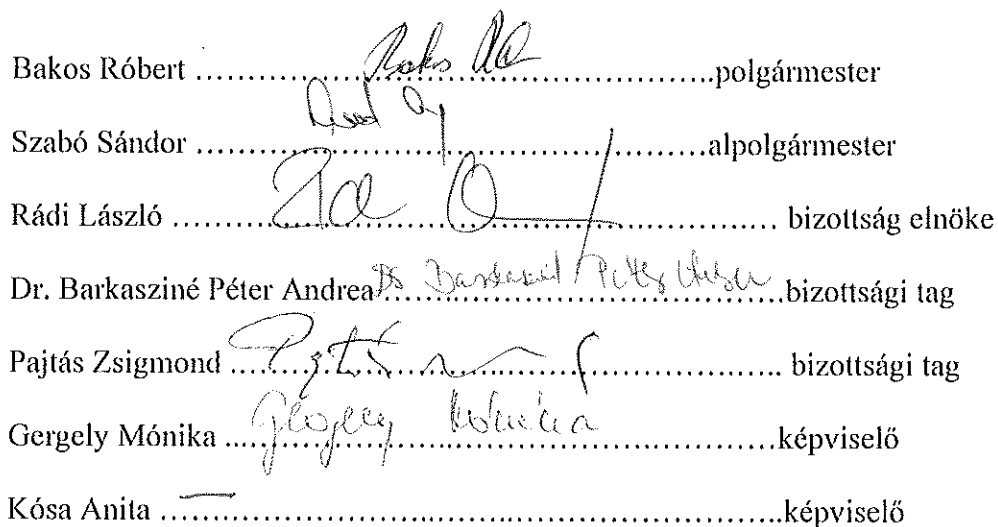 Bakos Róbert ................................................polgármester
Szabó Sándor ................................................alpolgármester
Rádi László ................................................ bizottság elnöke
Dr. Barkasziné Péter Andrea................................................bizottsági tag
Pajtás Zsigmond ................................................ bizottsági tag
Gergely Mónika ................................................képviselő
Kósa Anita ................................................képviselő